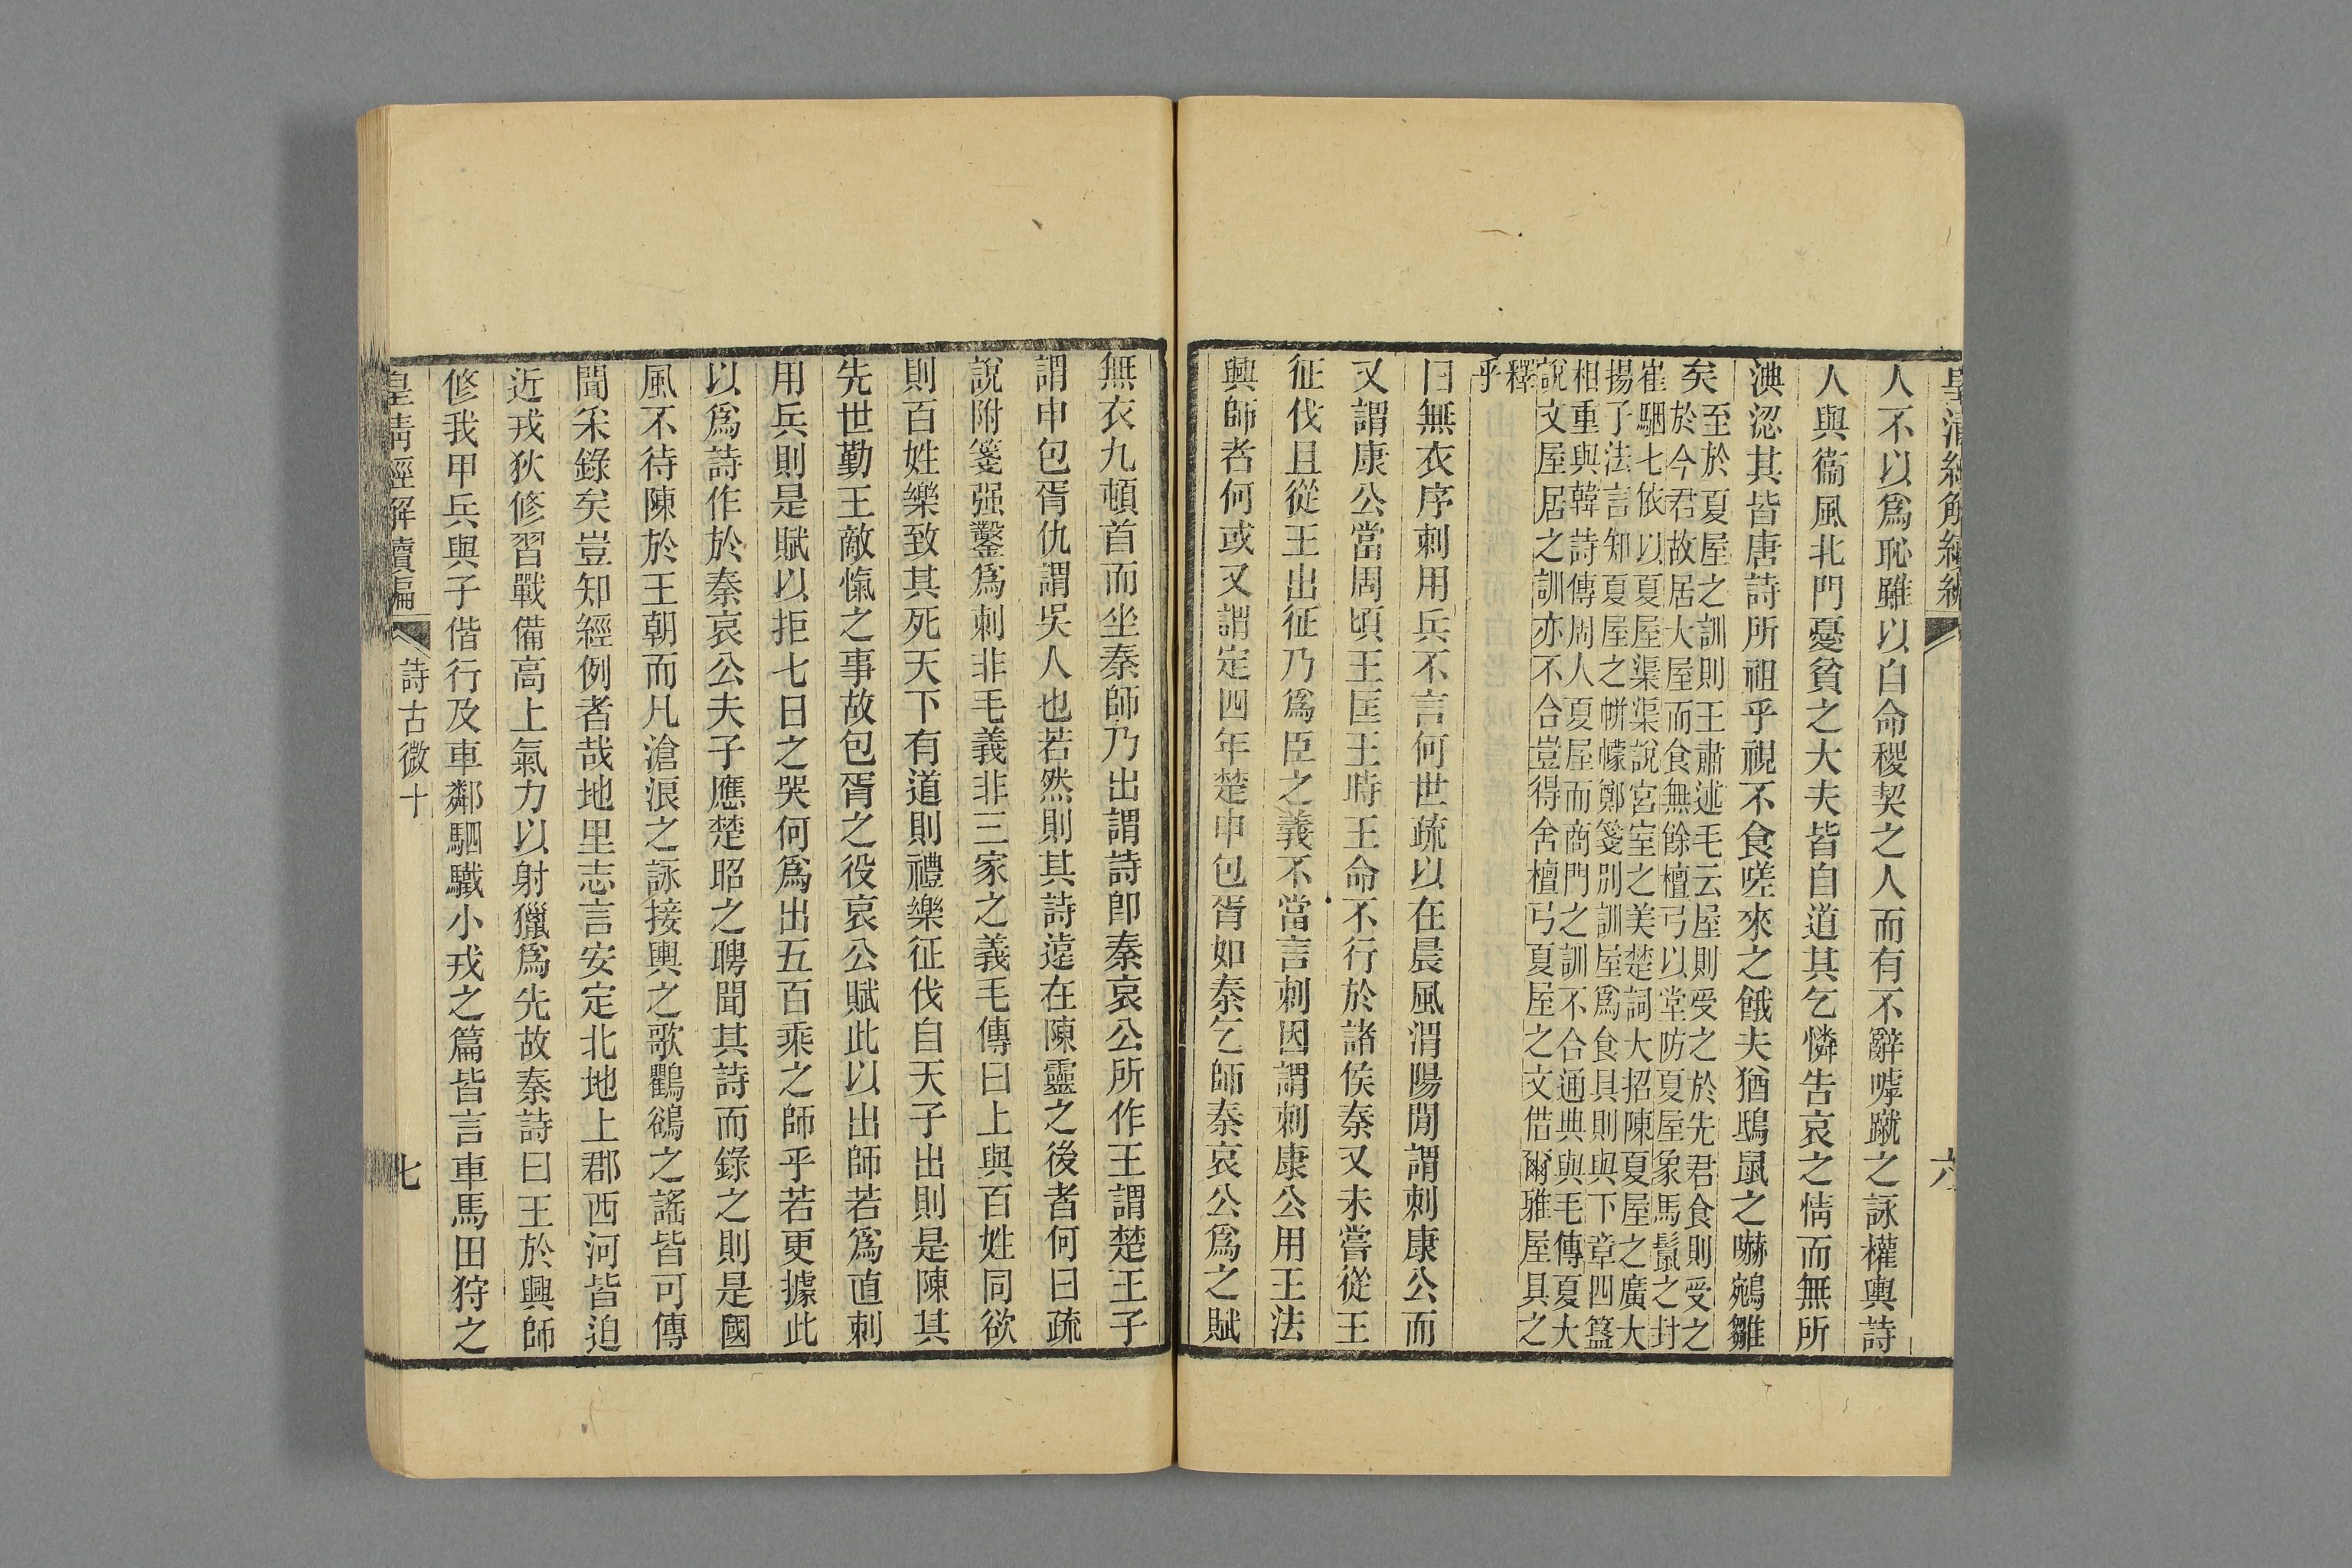 皇清經解續編
六
人不以爲恥雖以自命稷契之人而有不辭嘑蹴之詠權輿詩
人與衞風北門憂貧之大夫皆自道其乞憐告哀之情而無所
淟涊其皆唐詩所祖乎視不食嗟來之餓夫猶鴟鼠之嚇鵷雛
矣至於夏屋之訓則王肅述毛云屋則受之於先君食則受之
於今君故居大屋而食無餘檀弓以堂防夏屋象馬鬛之封
崔駰七依以夏屋渠渠說宮室之美楚詞大招陳夏屋之廣大
揚子法言知夏屋之帡幪鄭箋別訓屋爲食具則與下章四簋
相重與韓詩傳周人夏屋而商門之訓不合通典與毛傳夏大
說文屋居之訓亦不合豈得舍檀弓夏屋之文借爾雅屋具之
釋
乎
曰無衣序刺用兵不言何世疏以在晨風渭陽閒謂刺康公而
又謂康公當周頃王匡王時王命不行於諸侯秦又未嘗從王
征伐且從王出征乃爲臣之義不當言刺因謂刺康公用王法
興師者何或又謂定四年楚申包胥如秦乞師秦哀公爲之賦
無衣九頓首而坐秦師乃出謂詩卽秦哀公所作王謂楚王子
謂申包胥仇謂吳人也若然則其詩遠在陳靈之後者何曰疏
說附箋强鑿爲刺非毛義非三家之義毛傳曰上與百姓同欲
則百姓樂致其死天下有道則禮樂征伐自天子出則是陳其
先世勤王敵愾之事故包胥之役哀公賦此以出師若爲直刺
用兵則是賦以拒七日之哭何爲出五百乘之師乎若更據此
以爲詩作於秦哀公夫子應楚昭之聘聞其詩而錄之則是國
風不待陳於王朝而凡滄浪之詠接輿之歌鸜鵒之謠皆可傳
聞采錄矣豈知經例者哉地里志言安定北地上郡西河皆迫
近戎狄修習戰備高上氣力以射獵爲先故秦詩曰王於興師
修我甲兵與子偕行及車鄰駟驖小戎之篇皆言車馬田狩之
皇清經解續編
詩古微十
七